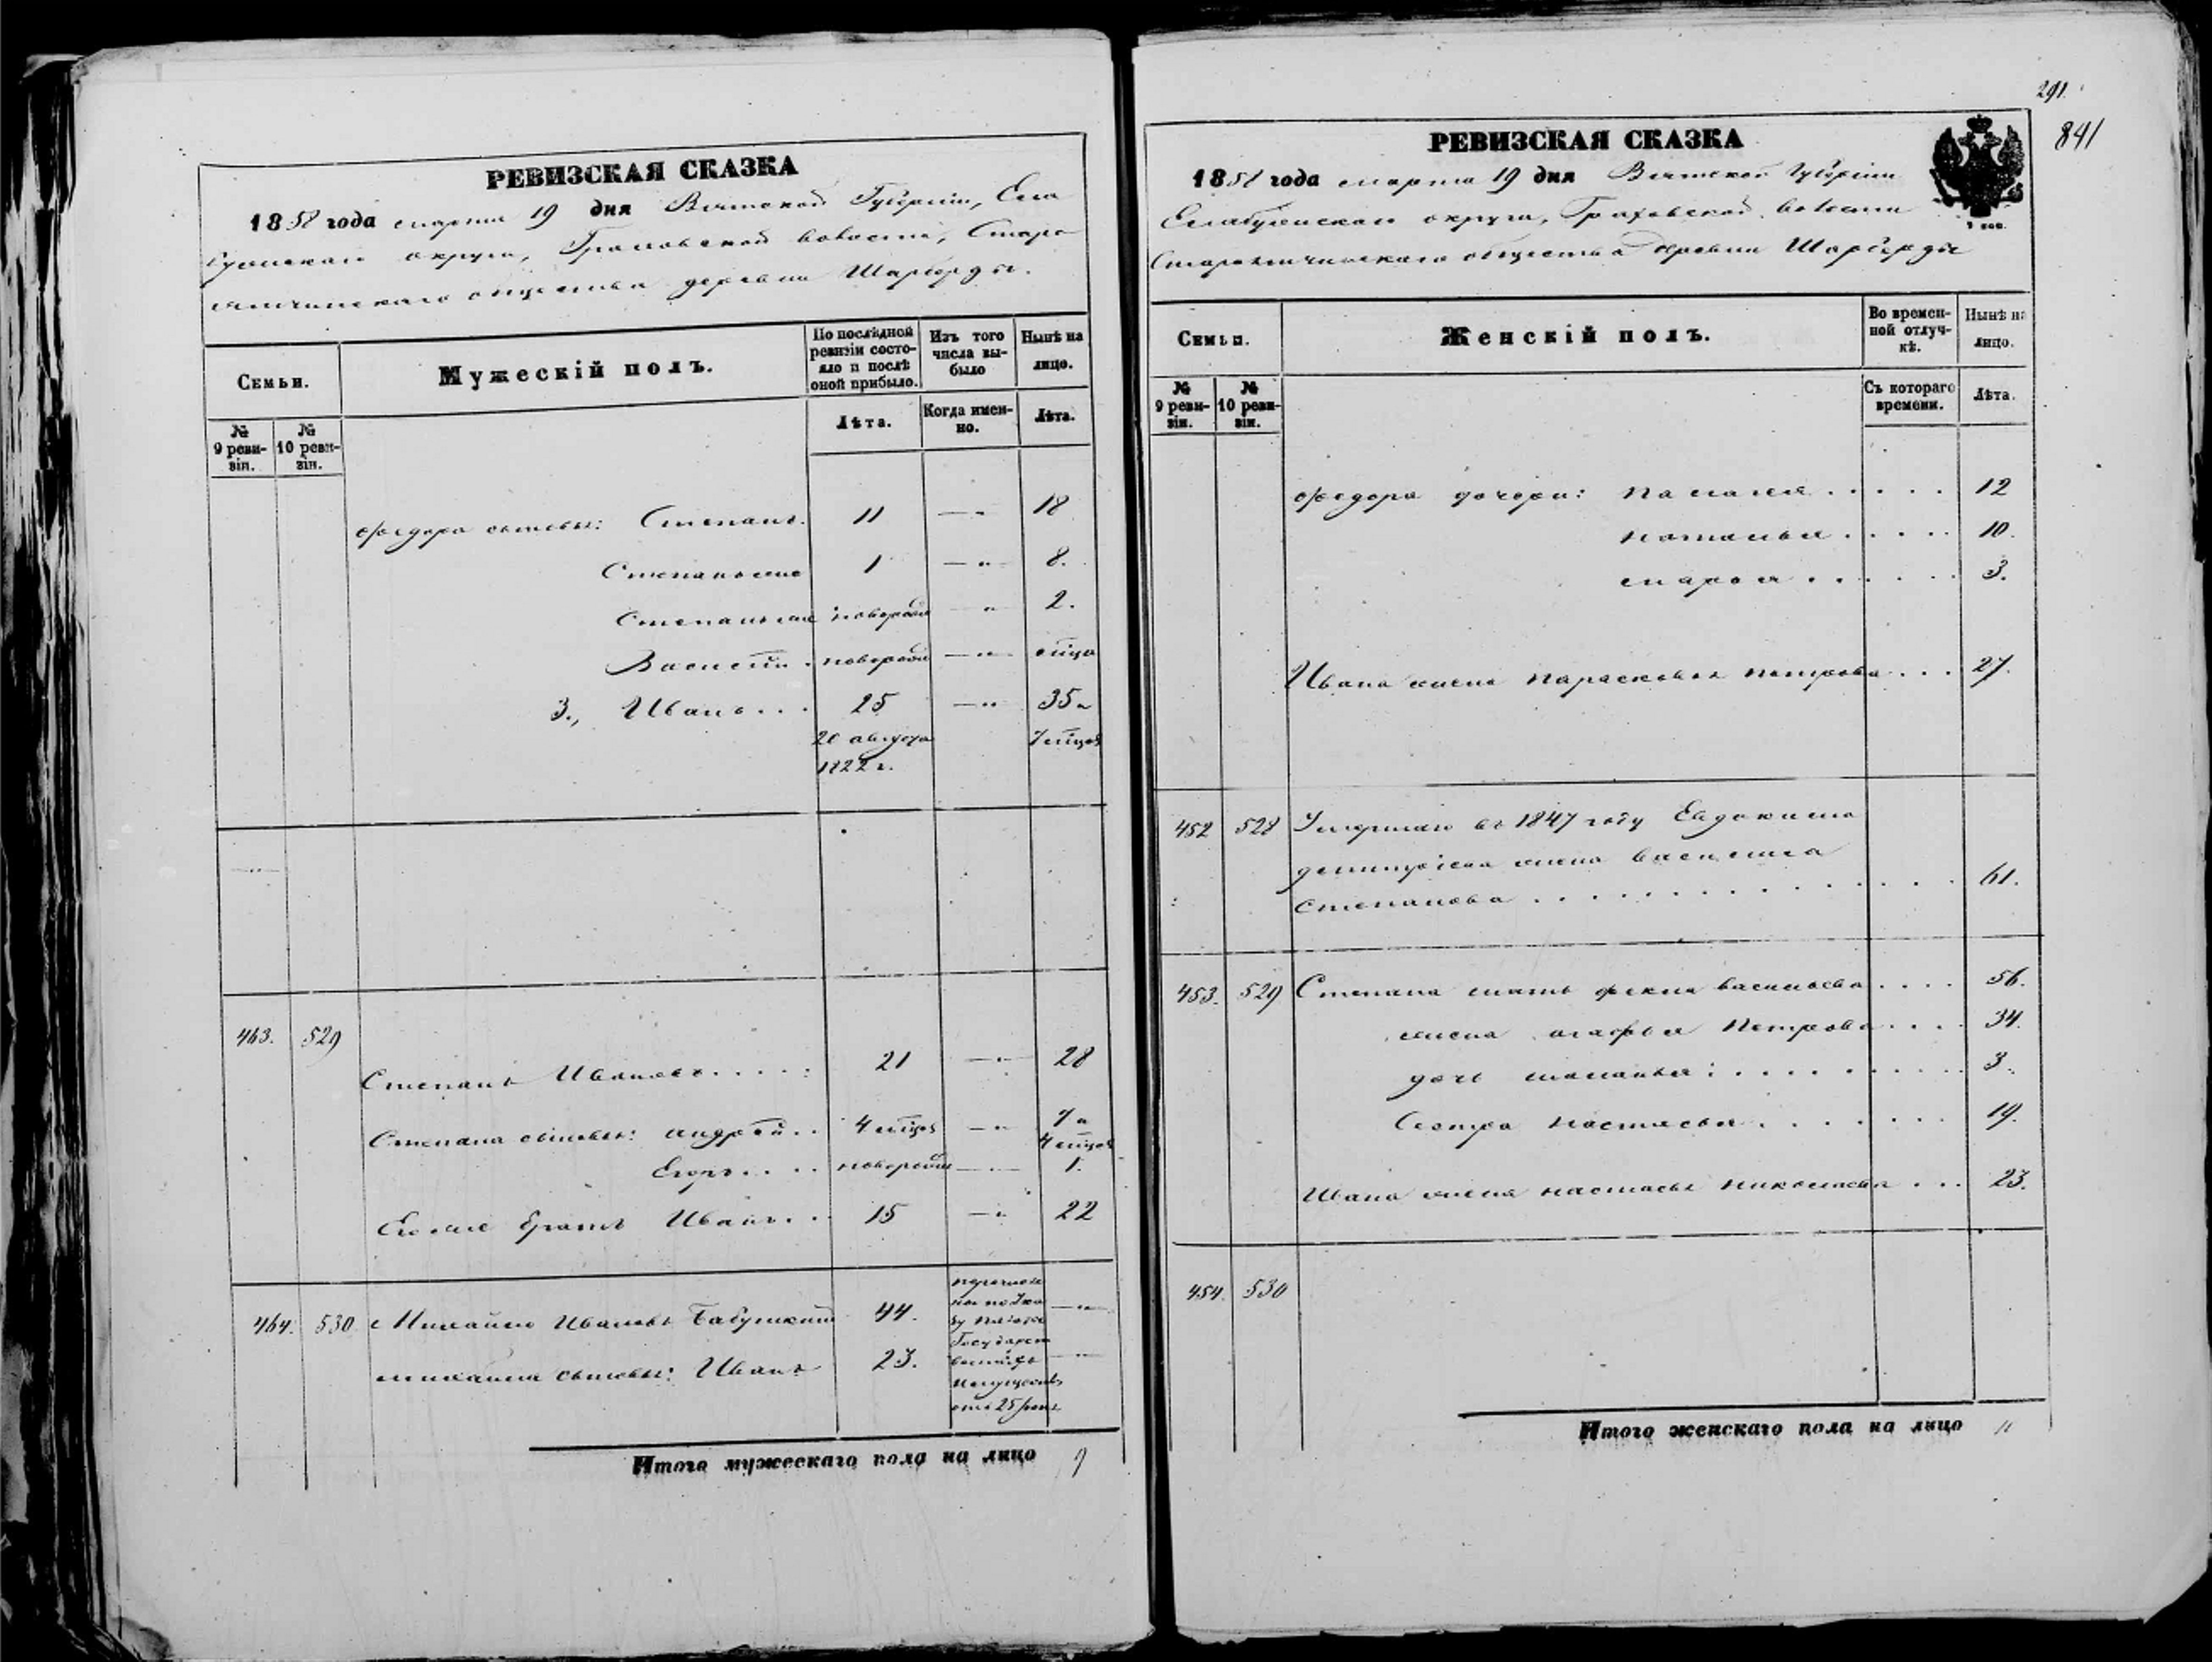 РЕВИЗСКАЯ СКАЗКА
1858 года марта 19 дня Вятской Губерніи, Ела
бужскаго округа, Граховской волости, Старо
ятчинскаго общества деревни Шарберды.
Семьи.
Мужескій полъ.
По послѣдней ревизіи состояло и послѣ оной прибыло.
Изъ того числа выбыло
Нынѣ на лицо.
№ 9 ревизіи.
№ 10 ревизіи.
Лѣта.
Когда именно.
Лѣта.
Федора сыновья: Степанъ. 11 — " 18
1 — " 8.
новорож — " 2.
Василій . новорож — " мѣца
3., Иванъ . . . 25 — " 35 и
20 августа 7 мѣцов
1822 г.
463. 529
Степанъ Ивановъ . . . . . 21 — " 28
Степана сыновья: Андрей . . 4 мѣцов — " 7 и
4 мѣцов
Егоръ . . . . новорож — " 1.
Его же братъ Иванъ . . . 15 — " 22
464. 530 Михайло Ивановъ Бабушкинъ 44. — "
Михайла сыновья: Иванъ 23. — "
по Ука
зу
Государст
венныхъ
Имуществъ
отъ 25
Итого мужескаго пола на лицо 9
291.
841
РЕВИЗСКАЯ СКАЗКА
1858 года марта 19 дня Вятской Губерніи
Елабужскаго округа, Граховской волости
Староятчинскаго общества деревни Шарберды
Семьи.
Женскій полъ.
Во временной отлучкѣ.
Нынѣ на лицо.
№ 9 ревизіи.
№ 10 ревизіи.
Съ котораго времени.
Лѣта.
Федора дочери: Палагея . . . . . 12
Наталья . . . . . 10.
Марья . . . . . . 3.
Ивана жена Парасковья Петрова . . . 27.
452 528 Умершаго въ 1847 году Евдокима
жена Василиса
Степанова . . . . . . . . . . . . 61.
453. 529 Степана мать Фекла Васильева . . . . 56.
жена Агафья Петрова . . . . 34.
дочь Маланья: . . . . . . . . . 3.
Сестра Настасья . . . . . . . 19.
Ивана жена Настасья Николаева . . . 23.
454. 530
Итого женскаго пола на лицо 11